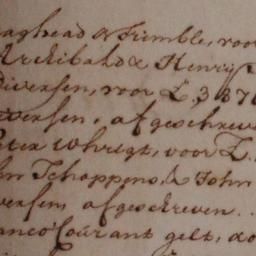 aghead & Trimble, voor
Archibald & Henrij
Diversen, voor £. 387
versen, afgeschreve
eter Whregt, voor £.
hn Schappens, & John
versen afgeschreven..
anco Courant gelt, do